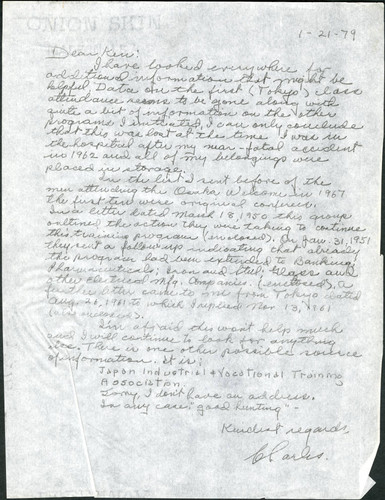 ONION SKIN
1-21-79
Dear Ken:
I have looked everywhere for
additional information that might be
helpful. Data on the first (Tokyo) class
attendance seems to be gone along with
quite a bit of information on the other
programs I instituted. I can only conclude
that this was lost at the time I was in
the hospital after my near-fatal accident
in 1962 and all of my belongings were
placed in storage.
In the list I sent before of the
men attending the Osaka Welcome in 1967
the first ten were original conferees.
In a letter dated March 18, 1950 this group
outlined the action they were taking to continue
this training program (enclosed). On Jan. 31, 1951
they sent a follow up indicating that already
the program had been extended to Banking,
Pharmaceuticals, Iron and Steel, Glass and
other electrical Mfg. Companies. (enclosed), a
further letter came to me from Tokyo dated
Aug. 26, 1961 to which I replied Nov 13, 1961
(also enclosed).
I'm afraid this won't help much
and I will continue to look for anything
else. There is one other possible source
of information. It is:
Japan Industrial & Vocational Training
Association.
Sorry, I don't have an address.
In any case "good hunting" -
Kindest regards,
Charles.